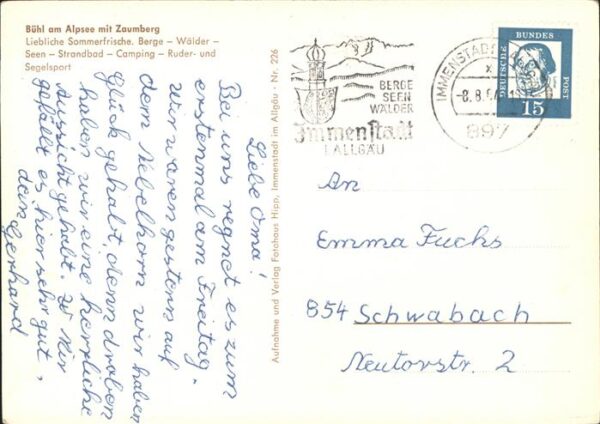 Bühl am Alpsee mit Zaumberg
Liebliche Sommerfrische. Berge – Wälder –
Seen – Strandbad – Camping – Ruder- und
Segelsport
Liebe Oma!
Bei uns regnet es zum
erstenmal am Freitag.
Wir waren gestern auf
dem Nebelhorn wir haben
glück gehabt, denn droben
haben wir eine herrliche
Aussicht gehabt. Mir
gefällt es hier sehr gut,
dein
Gerhard
Aufnahme und Verlag Fotohaus Hipp, Immenstadt im Allgäu · Nr. 226
BERGE
SEEN
WÄLDER
Immenstadt
I. ALLGÄU
IMMENSTADT
-8.8.
897
DEUTSCHE
BUNDES
POST
15
An
Emma Fuchs
854 Schwabach
Neutorstr. 2